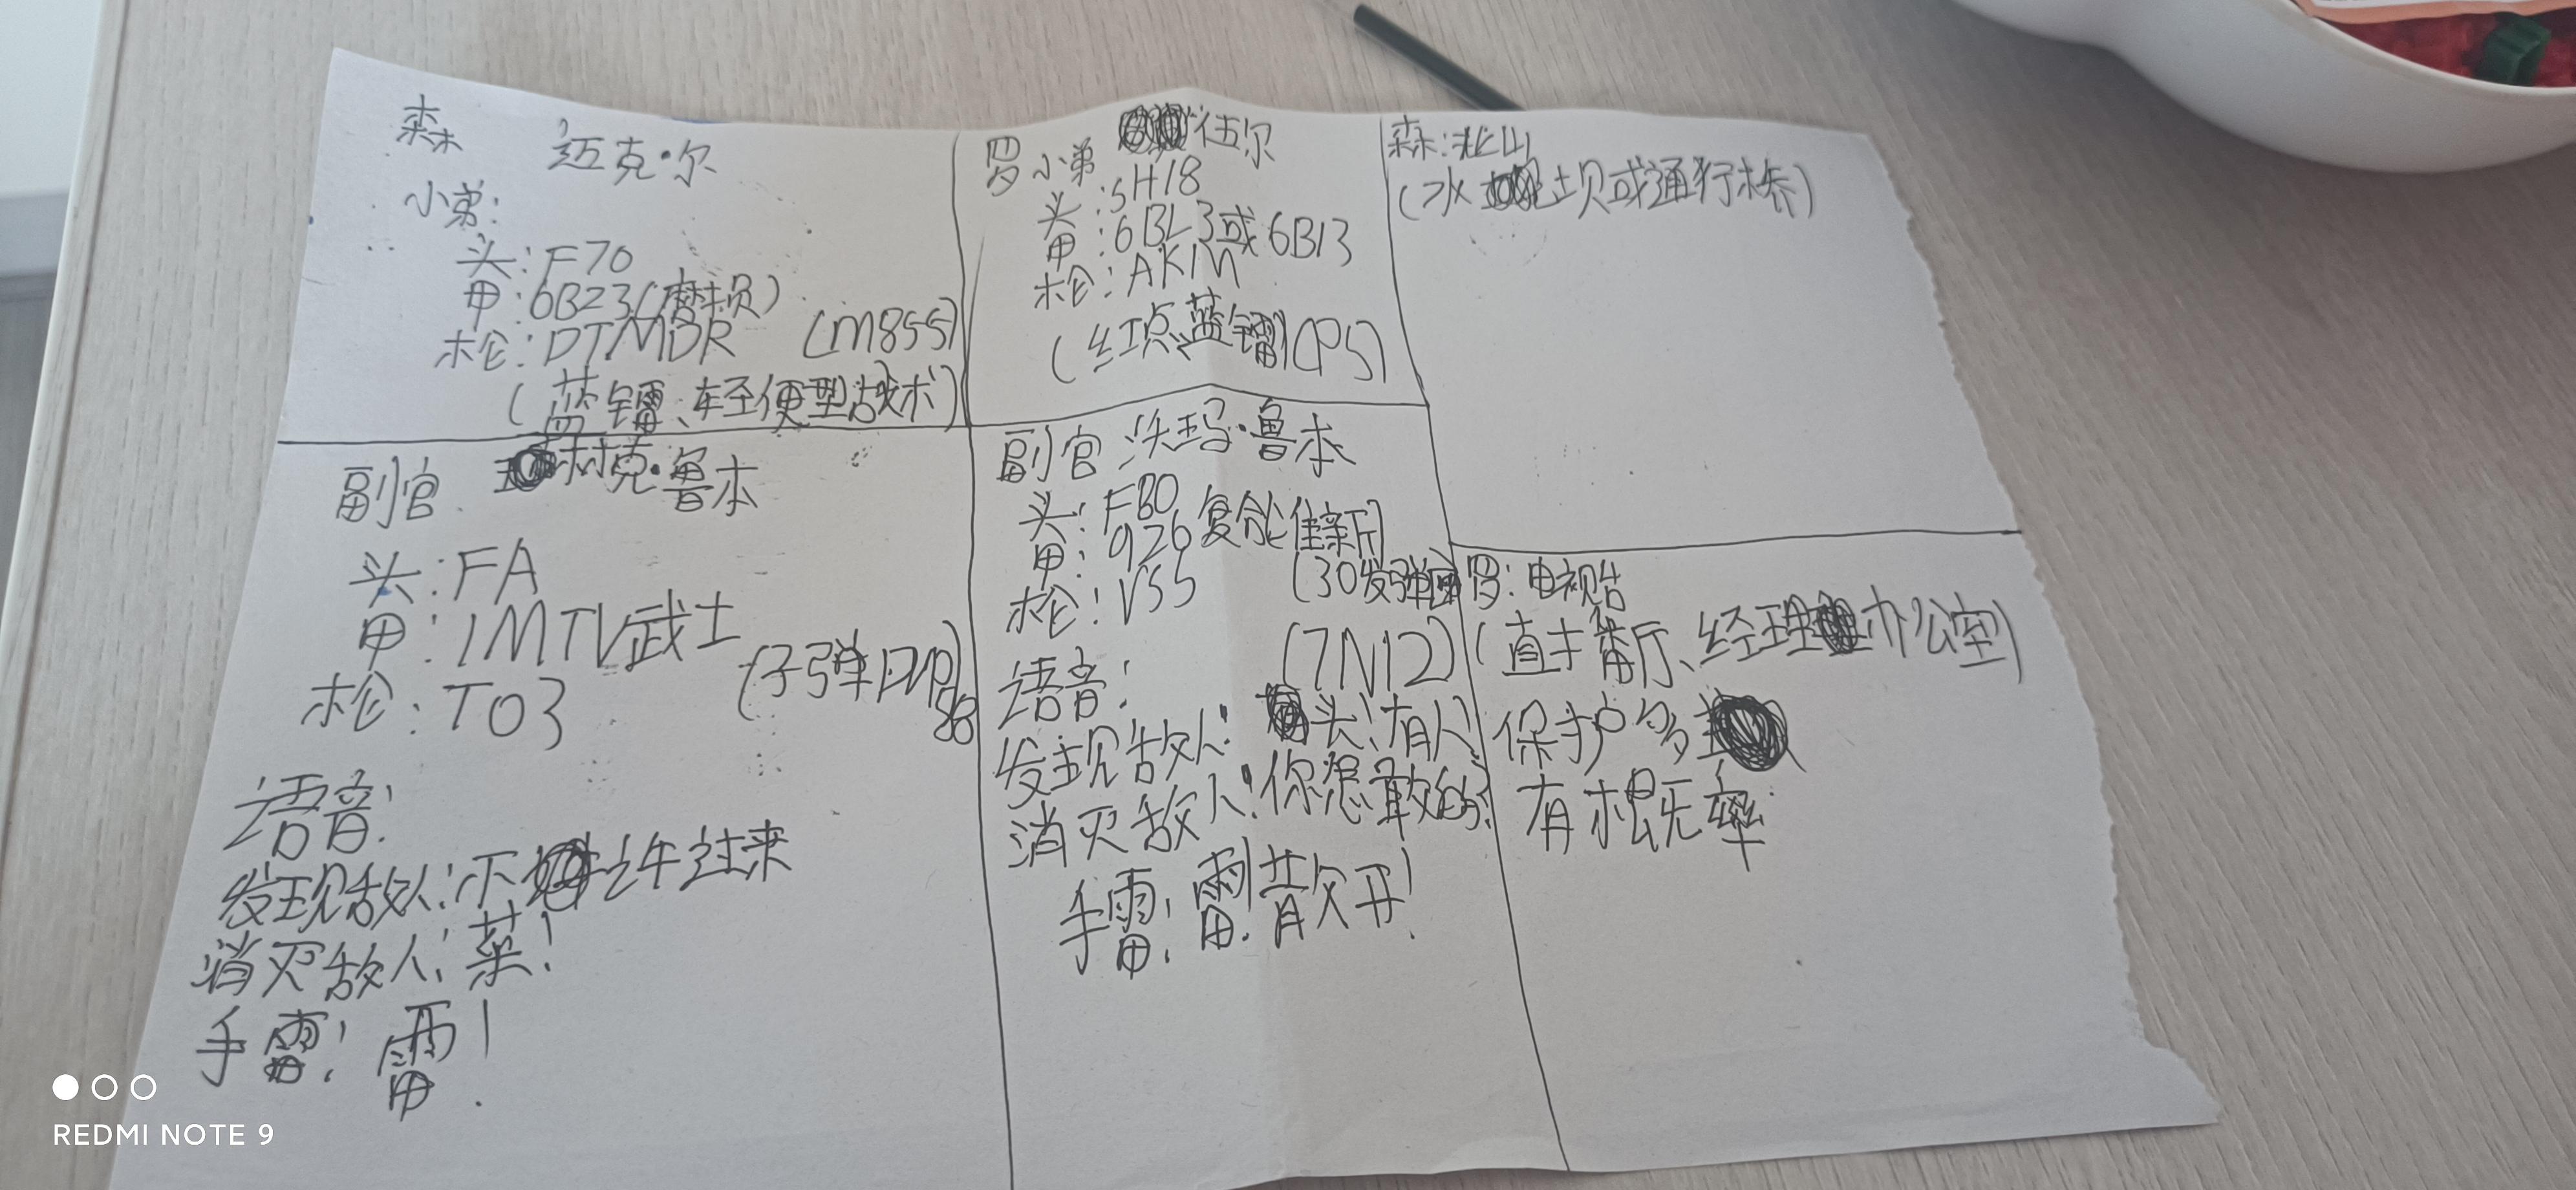 森 迈克·尔
小弟:
头:F70
甲:6B23(磨损)
枪:DTMDR (M855)
(蓝镭、轻便型战术)
罗小弟 仕尔
头:SH18
甲:6BL3或6B13
枪:AKM
(红点、蓝镭)(PS)
森:北山
(水坝或通行桥)
副官 村克·鲁本
头:FA
甲:IMTV武士
枪:T03 (子弹
语音:
发现敌人:不 过来
消灭敌人:菜!
手雷:雷!
副官 沃玛·鲁本
头:FBO
甲:926复合
枪:VSS (30发弹
(7N12)
语音:
发现敌人: 头!有人
消灭敌人:你怎敢的
手雷:雷!散开!
罗:电视台
(直 厅、经理办公室)
保护多
有概率